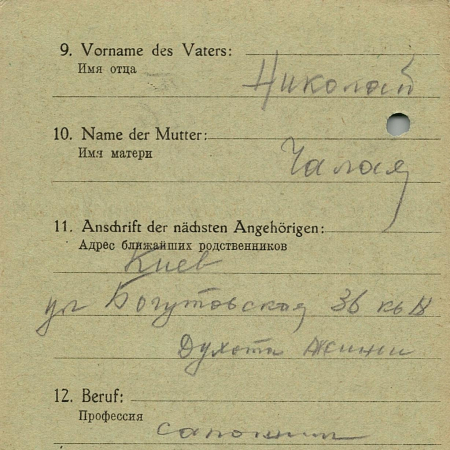 9. Vorname des Vaters:
Имя отца
Николай
10. Name der Mutter:
Имя матери
Чалая
11. Anschrift der nächsten Angehörigen:
Адрес ближайших родственников
Киев
ул Богутовская 36 кв
12. Beruf:
Профессия
сапожник